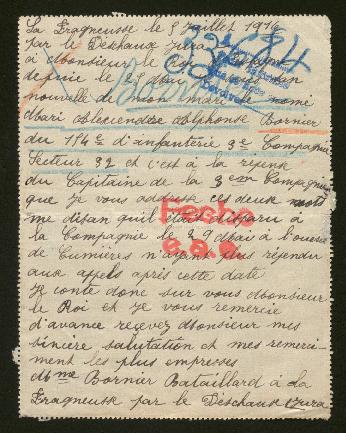 La Fragneusse le 5 juillet 1916
par le Deschaux Jura
à Monsieur le Roi
depuis le 29 Mai
nouvelle de mon mari le nomé
Mari Alexandre Alphonse Bornier
du 154e d'infanterie 3e Compagnie
Secteur 32 et c'est à la répense
du Capitaine de la 3em Compagnie
que je vous adresse ces deux mots
me disan quil était disparu à
la Compagnie le 29 Mai à l'ouest
de Cumières n'ayant plus répendu
aux appels après cette date
Je conte donc sur vous Monsieur
le Roi et je vous remercie
d'avance recevez Monsieur mes
sincère salutation et mes remerci-
ment les plus empresses
Mme Bornier Bataillard à La
Fragneusse par le Deschaux Jura